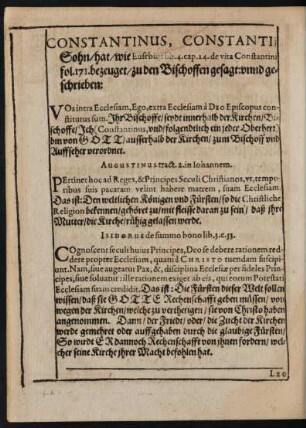 CONSTANTINUS, CONSTANTII
Sohn/hat/wie Eusebius lib.4.cap.24. de vita Constantini
fol.171. bezeuget/zu den Bischoffen gesagt: vnnd ge-
schrieben:
VOs intra Ecclesiam, Ego, extra Ecclesiam á DEO Episcopus con-
stitutus sum. Ihr Bischoffe/seydt innerhalb der Kirchen/Bi-
schoffe/Ich (Constantinus, vnd folgendlich ein jeder Oberherr)
bin von GOTT/ausserhalb der Kirchen/zum Bischoff vnd
Auffseher verordnet.
AUGUSTINUS tract. 2. in Iohannem.
PErtinet hoc ad Reges, & Principes Seculi Christianos, vt, tempo-
ribus suis pacatam velint habere matrem, suam Ecclesiam.
Das ist: Den weltlichen Königen vnd Fürsten/so die Christliche
Religion bekennen/gehöret zu/mit fleisse daran zu sein/daß ihre
Mutter/die Kirche rühig gelassen werde.
ISIDORUS de summo bono lib.3. c.53.
COgnoscent seculi huius Principes, Deo se debere rationem red-
dere propter Ecclesiam, quam á CHRISTO tuendam suscipi-
unt. Nam, siue augeatur Pax, &, disciplina Ecclesiæ per fideles Prin-
cipes, siue soluatur: ille rationem exiget ab eis, qui eorum Potestati
Ecclesiam suam credidit. Das ist: Die Fürsten dieser Welt sollen
wissen/daß sie GOTTE Rechenschafft geben müssen/von
wegen der Kirchen/welche zu vertheitigen/sie von Christo haben
angenommen. Dann/der Friede/oder die Zucht der Kirchen
werde gemehret oder auffgehaben durch die glaubige Fürsten/
So wirdt ER dannoch Rechenschafft von ihnen fordern/wel-
cher seine Kirche ihrer Macht befohlen hat.
LEO